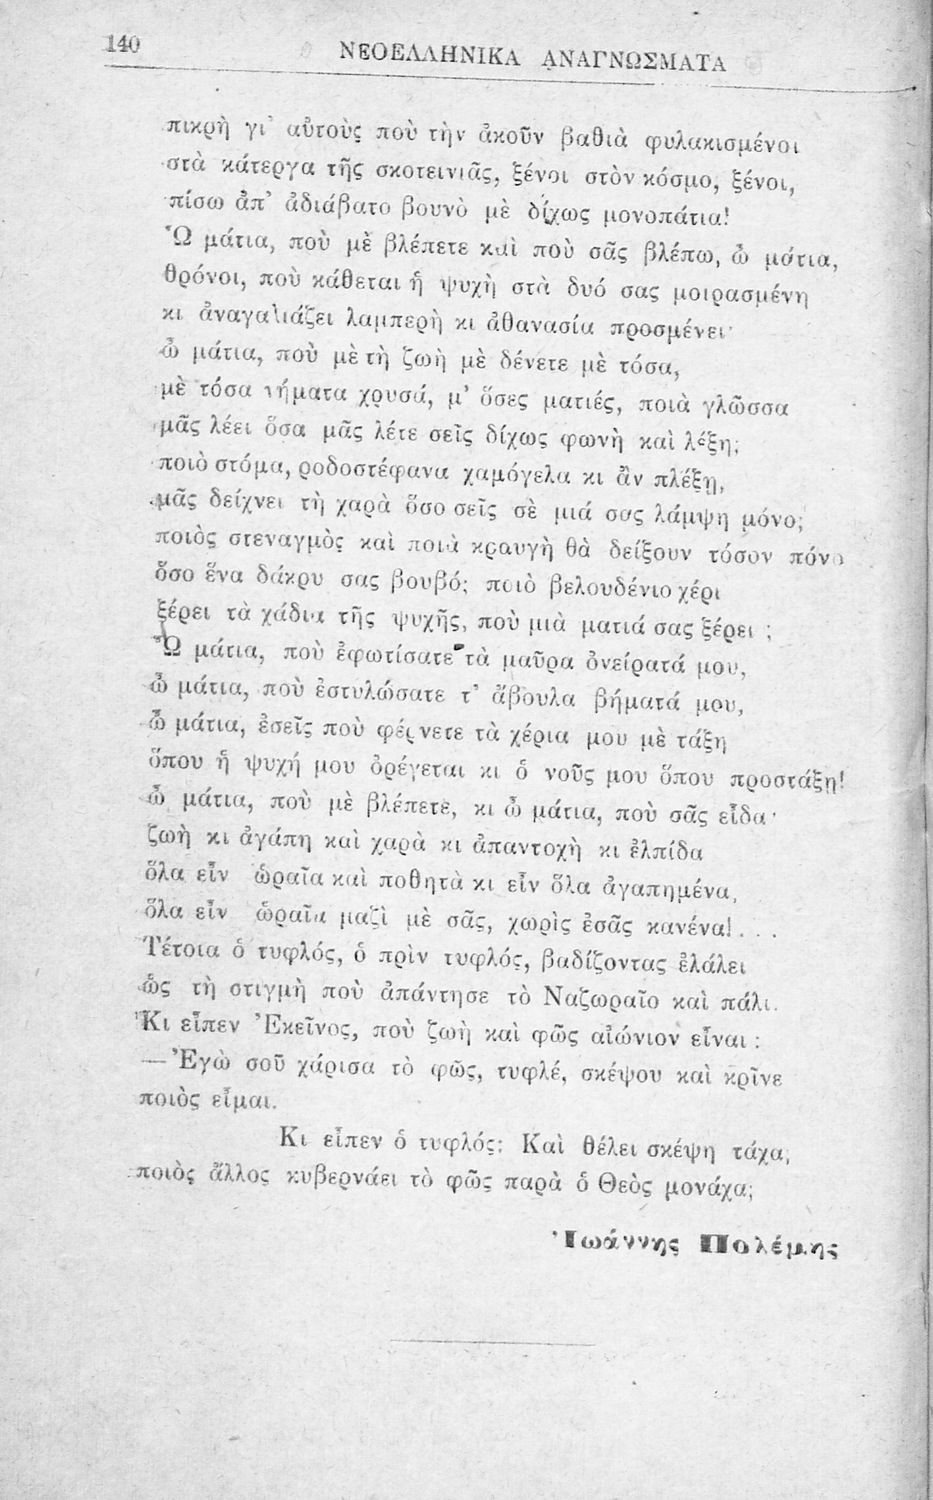 140
ΝΕΟΕΛΛΗΝΙΚΑ ΑΝΑΓΝΩΣΜΑΤΑ
πικρὴ γι᾿ αὐτοὺς ποὺ τὴν ἀκοῦν βαθιὰ φυλακισμένοι
στὰ κάτεργα τῆς σκοτεινιᾶς, ξένοι στὸν κόσμο, ξένοι,
πίσω ἀπ᾿ ἀδιάβατο βουνὸ μὲ δίχως μονοπάτια!
Ὦ μάτια, ποὺ μὲ βλέπετε καὶ ποὺ σᾶς βλέπω, ὦ μάτια,
θρόνοι, ποὺ κάθεται ἡ ψυχὴ στὰ δυό σας μοιρασμένη
κι ἀναγαλιάζει λαμπερὴ κι ἀθανασία προσμένει·
ὦ μάτια, ποὺ μὲ τὴ ζωὴ μὲ δένετε μὲ τόσα,
μὲ τόσα νήματα χρυσά, μ᾿ ὅσες ματιές, ποιὰ γλῶσσα
μᾶς λέει ὅσα μᾶς λέτε σεῖς δίχως φωνὴ καὶ λέξη;
ποιὸ στόμα, ροδοστέφανα χαμόγελα κι ἂν πλέξῃ,
μᾶς δείχνει τὴ χαρὰ ὅσο σεῖς σὲ μιά σας λάμψη μόνο;
ποιὸς στεναγμὸς καὶ ποιὰ κραυγὴ θὰ δείξουν τόσον πόνο
ὅσο ἕνα δάκρυ σας βουβό; ποιὸ βελουδένιο χέρι
ξέρει τὰ χάδια τῆς ψυχῆς, ποὺ μιὰ ματιά σας ξέρει ;
Ὦ μάτια, ποὺ ἐφωτίσατε τὰ μαῦρα ὀνείρατά μου,
ὦ μάτια, ποὺ ἐστυλώσατε τ᾿ ἄβουλα βήματά μου,
ὦ μάτια, ἐσεῖς ποὺ φέρνετε τὰ χέρια μου μὲ τάξη
ὅπου ἡ ψυχή μου ὀρέγεται κι ὁ νοῦς μου ὅπου προστάξῃ!
ὦ μάτια, ποὺ μὲ βλέπετε, κι ὦ μάτια, ποὺ σᾶς εἶδα·
ζωὴ κι ἀγάπη καὶ χαρὰ κι ἀπαντοχὴ κι ἐλπίδα
ὅλα εἶν ὡραῖα καὶ ποθητὰ κι εἶν ὅλα ἀγαπημένα,
ὅλα εἶν ὡραῖα μαζὶ μὲ σᾶς, χωρὶς ἐσᾶς κανένα!...
Τέτοια ὁ τυφλός, ὁ πρὶν τυφλός, βαδίζοντας ἐλάλει
ὡς τὴ στιγμὴ ποὺ ἀπάντησε τὸ Ναζωραῖο καὶ πάλι.
Κι εἶπεν Ἐκεῖνος, ποὺ ζωὴ καὶ φῶς αἰώνιον εἶναι :
— Ἐγὼ σοῦ χάρισα τὸ φῶς, τυφλέ, σκέψου καὶ κρῖνε
ποιὸς εἶμαι.
Κι εἶπεν ὁ τυφλός: Καὶ θέλει σκέψη τάχα,
ποιὸς ἄλλος κυβερνάει τὸ φῶς παρὰ ὁ Θεὸς μονάχα;
Ἰωάννης Πολέμης